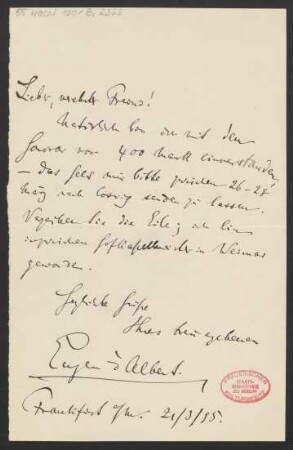 55 Nachl 100/B, 2366
Lieber, verehrter Freund!
Natürlich bin ich mit dem
Honorar von 400 Mark einverstanden!
— das Geld mir bitte zwischen 26-28
März nach senden zu lassen.
Verzeihen Sie die Eile; ich bin
inzwischen Hofkapellmeister in Weimar
geworden.
Herzliche Grüße
Ihres treu ergebenen
Eugen d'Albert.
Frankfurt a/M. 21/3/95.